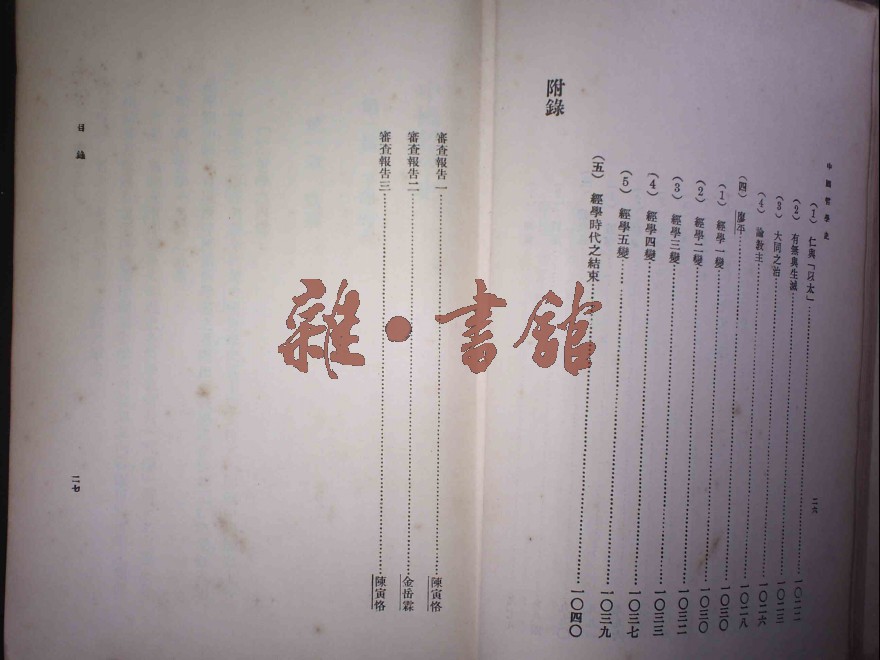 中國哲學史
二六
（1）仁與「以太」……一〇二二
（2）有無與生滅……一〇二三
（3）大同之治……一〇二六
（4）論教主……一〇二八
（四）廖平……一〇三〇
（1）經學一變……一〇三〇
（2）經學二變……一〇三二
（3）經學三變……一〇三三
（4）經學四變……一〇三七
（5）經學五變……一〇三九
（五）經學時代之結束……一〇四〇
附錄
審查報告一……陳寅恪
審查報告二……金岳霖
審查報告三……陳寅恪
目錄
二七
雜•書館